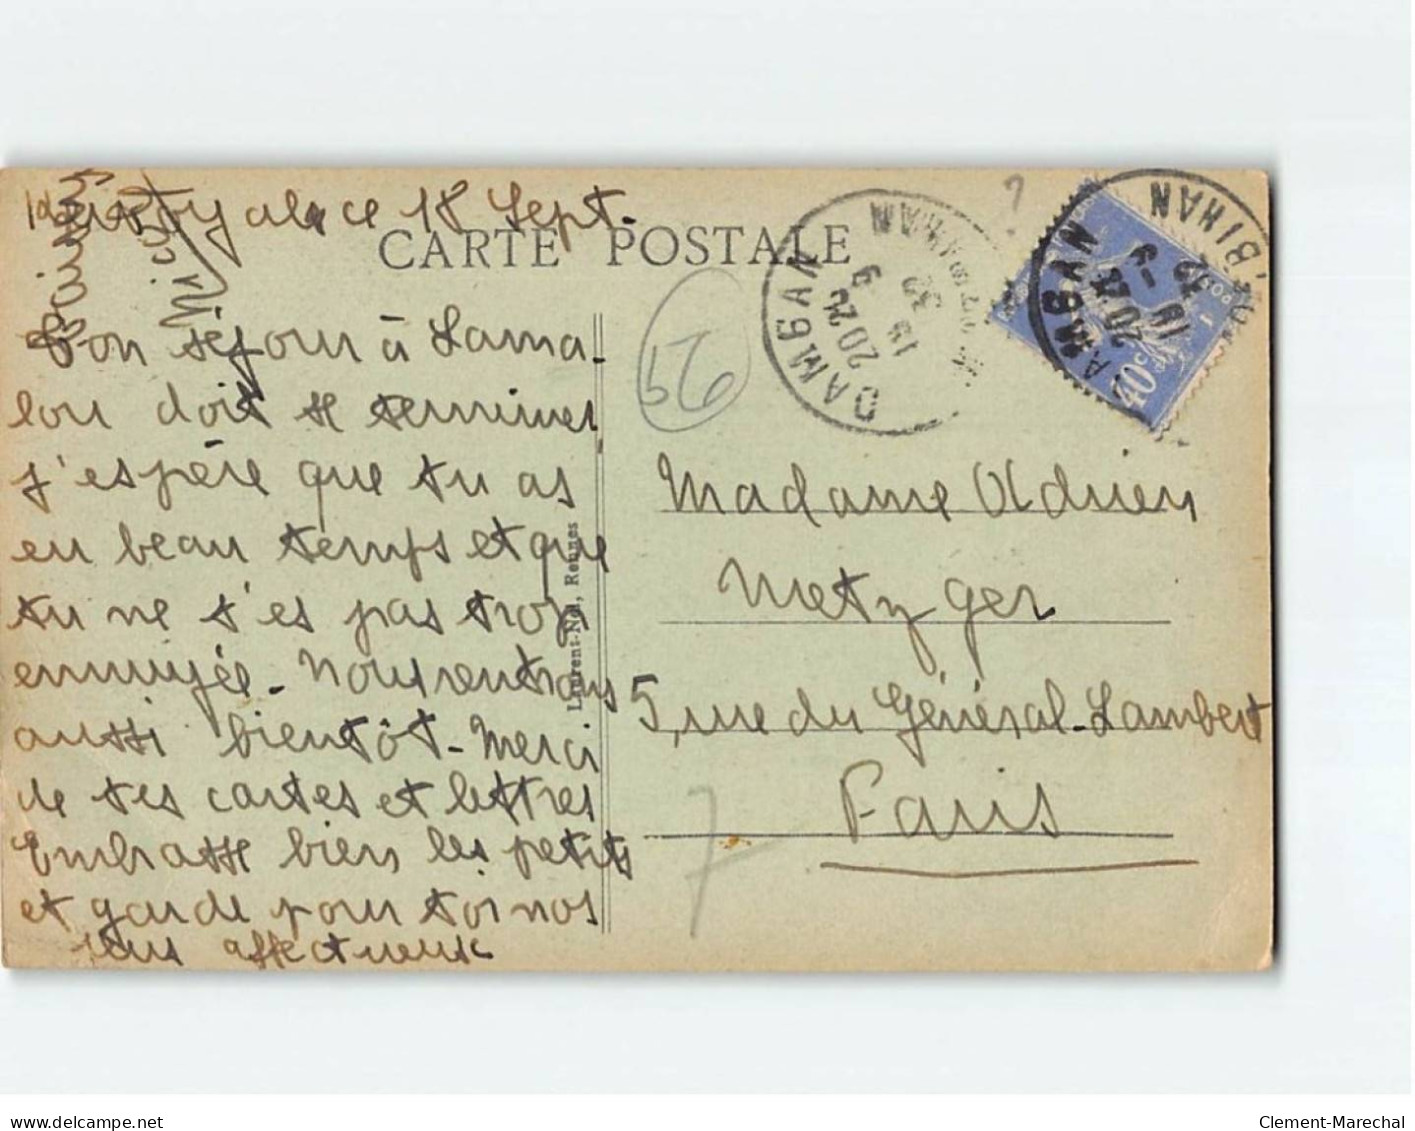 18 Sept.
CARTE POSTALE
Ton séjour à Lama-
lou doit se terminer
j'espère que tu as
eu beau temps et que
tu ne t'es pas trop
ennuyée - Nous rentrons
aussi bientôt - Merci
de tes cartes et lettres
Embrasse bien les petits
et garde pour toi nos
affectueux
baisers
Nicole
Laurent-Nel, Rennes
56
DAMGAN
20 24
18 9
32
MORBIHAN
DAMGAN
20 24
18 - 9
32
BIHAN
40c
POSTES
Madame Adrien
Metzger
5, rue du Général-Lambert
Paris
7
delcampe.net
Clement-Marechal